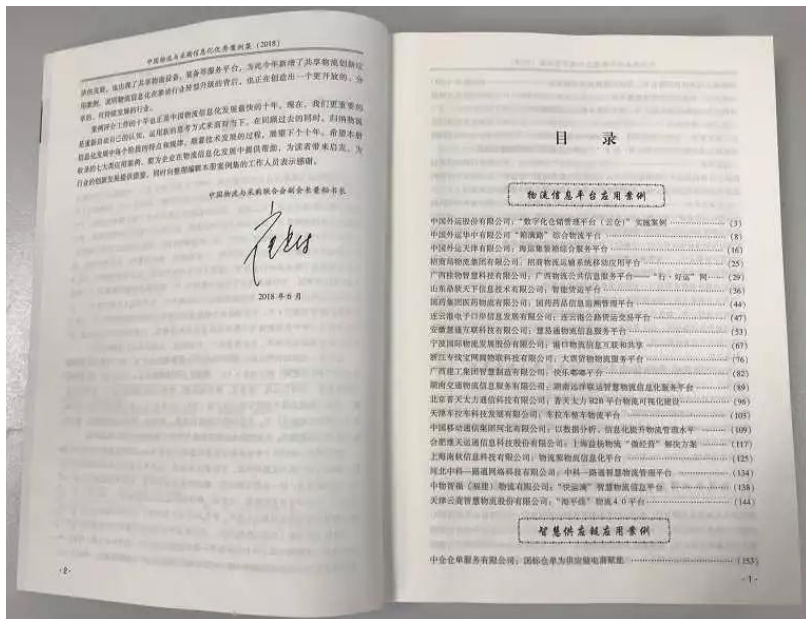 中国物流与采购信息化优秀案例集（2018）
济的发展，也出现了共享物流设备、装备等服务平台，为此今年新增了共享物流创新应
用案例，说明物流信息化在推动行业转型升级的背后，也正在创造出一个更开放的、分
享的、可持续发展的行业。
案例评介工作的十年也正是中国物流信息化发展最快的十年。现在，我们更重要的
是重新总结自己的认知，运用新的思考方式来面对当下。在回顾过去的同时，归纳物流
信息化发展中每个阶段的特点和规律、顺着技术发展的过程，展望下个十年。希望本册
收录的七大类应用案例，能为企业在物流信息化发展中提供帮助，为读者带来启发，为
行业的创新发展提供借鉴。同时向整理编辑本册案例集的工作人员表示感谢。
中国物流与采购联合会副会长兼秘书长
2018 年 6 月
·2·
目 录
物流信息平台应用案例
中国外运股份有限公司：“数字化仓储管理平台（云仓）”实施案例 (3)
中国外运华中有限公司“箱满路”综合物流平台 (8)
中国外运天津有限公司：海运集装箱综合服务平台 (16)
招商局物流集团有限公司：招商物流运输系统移动应用平台 (25)
广西桂物智慧科技有限公司：广西物流公共信息服务平台——“行·好运”网 (29)
山东鼎软天下信息技术有限公司：智能货运平台 (36)
国药集团医药物流有限公司：国药药品信息追溯管理平台 (44)
连云港电子口岸信息发展有限公司：连云港公路货运交易平台 (47)
安徽慧通互联科技有限公司：慧易通物流信息服务平台 (53)
宁波国际物流发展股份有限公司：港口物流信息互联和共享 (67)
浙江专线宝网阔物联科技有限公司：大票货物物流服务平台 (76)
广西建工集团智慧制造有限公司：快乐嘟嘟平台 (82)
湖南交通物流信息服务有限公司：湖南远洋联运智慧物流信息化服务平台 (89)
北京普天太力通信科技有限公司：普天太力B2B平台物流可视化建设 (96)
天津车拉车科技发展有限公司：车拉车整车物流平台 (105)
中国移动通信集团河北有限公司：以数据分析、信息化提升物流管理水平 (109)
合肥维天运通信息科技股份有限公司：上海益扬物流“微经营”解决方案 (117)
上海南软信息科技有限公司：物流源物流信息化平台 (125)
河北中科一路通网络科技有限公司：中科一路通智慧物流管理平台 (134)
中物智福（福建）物流有限公司：“快运滴”智慧物流信息平台 (138)
天津云商智慧物流股份有限公司：“海平线”物流4.0平台 (144)
智慧供应链应用案例
中仓仓单服务有限公司：国标仓单为供应链电商赋能 (153)
·1·